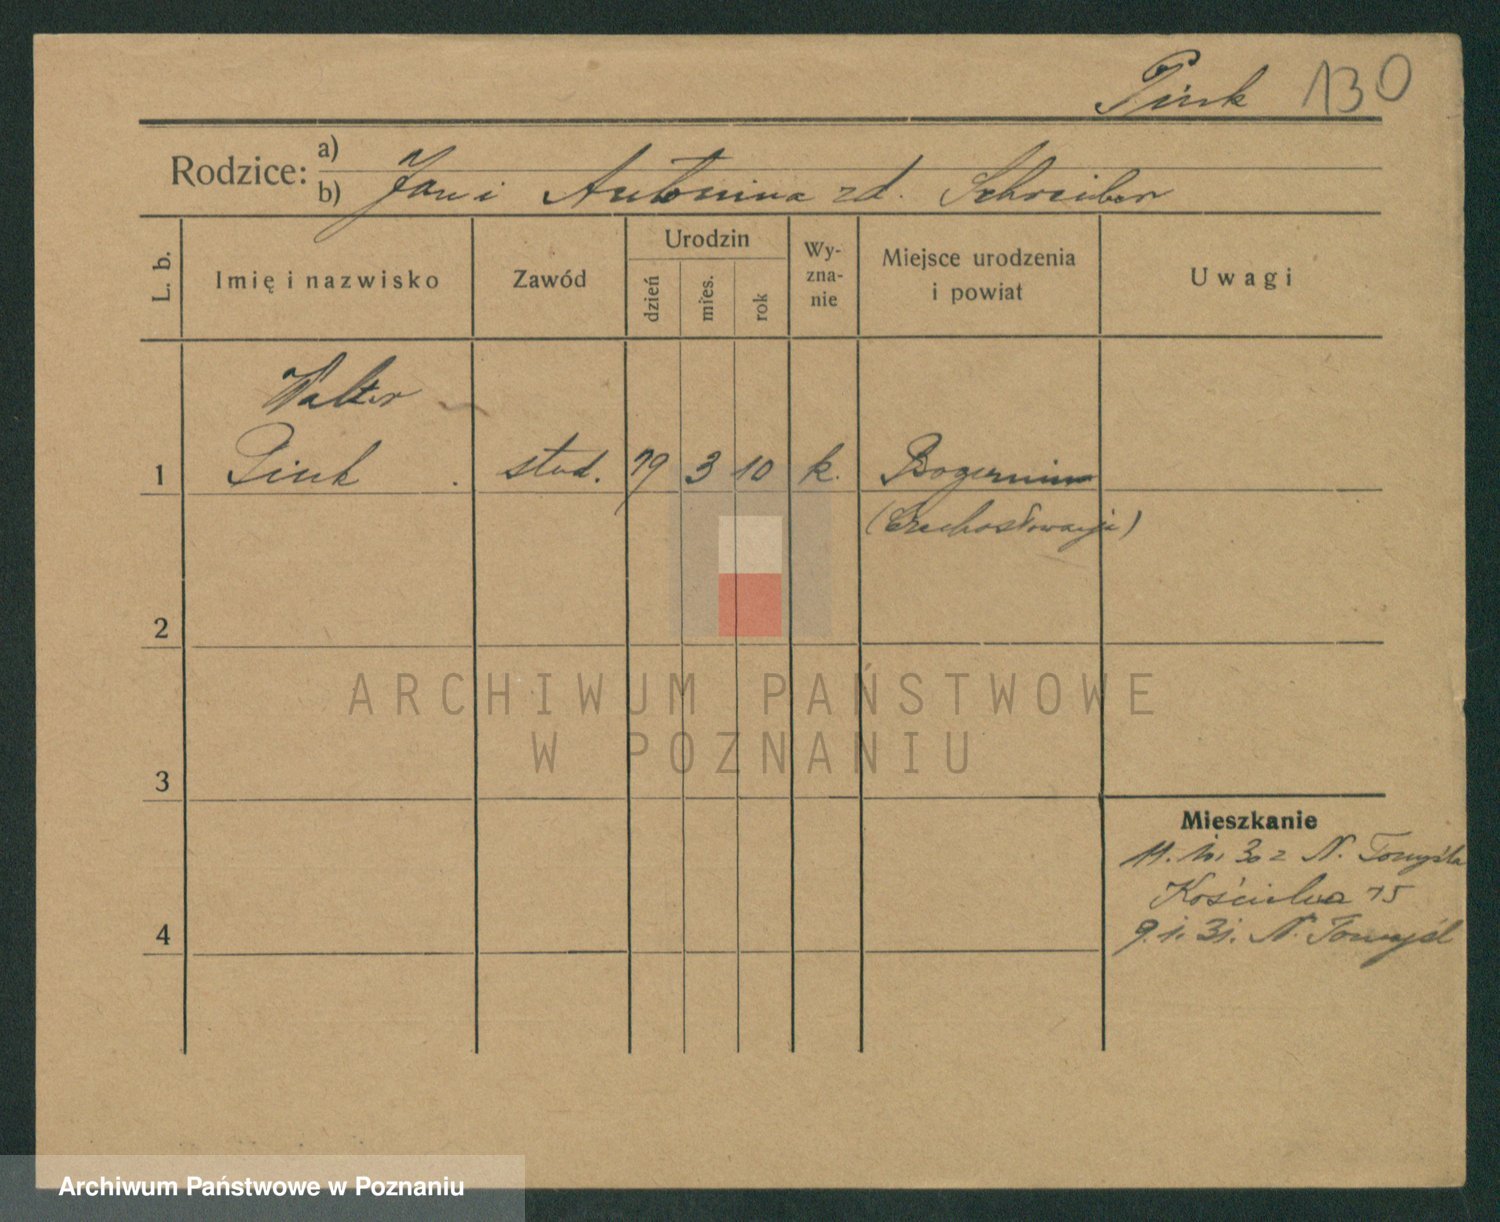 Pink 130
Rodzice: a)
b) Jan i Antonina zd. Schreiber
L. b.
Imię i nazwisko
Zawód
Urodzin
dzień
mies.
rok
Wy-
zna-
nie
Miejsce urodzenia
i powiat
Uwagi
Walter
1 Pink stud. 19 3 10 k.
(Czechosłowacja)
2
3
4
Mieszkanie
N. Tomyśla
Kościelna 15
9. 1. 31. N. Tomyśl
ARCHIWUM PAŃSTWOWE
W POZNANIU
Archiwum Państwowe w Poznaniu